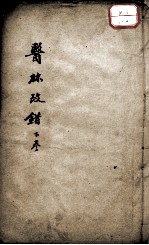 醫林改錯下卷